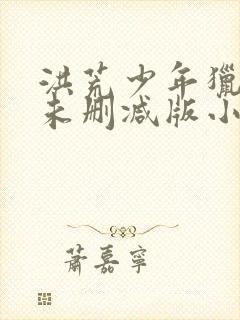 洪荒少年猎
未删减版小
萧嘉宁